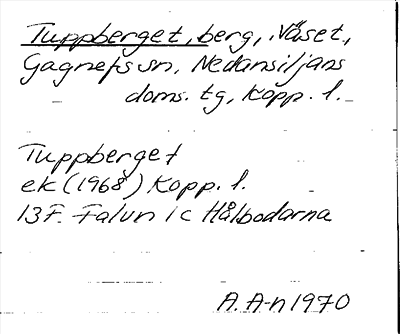 Tuppberget, berg, Näset,
Gagnefs sn, Nedansiljans
doms. tg, Kopp. l.
Tuppberget
ek (1968) Kopp. l.
13F. Falun 1c Hålbodarna
A. A-n 1970